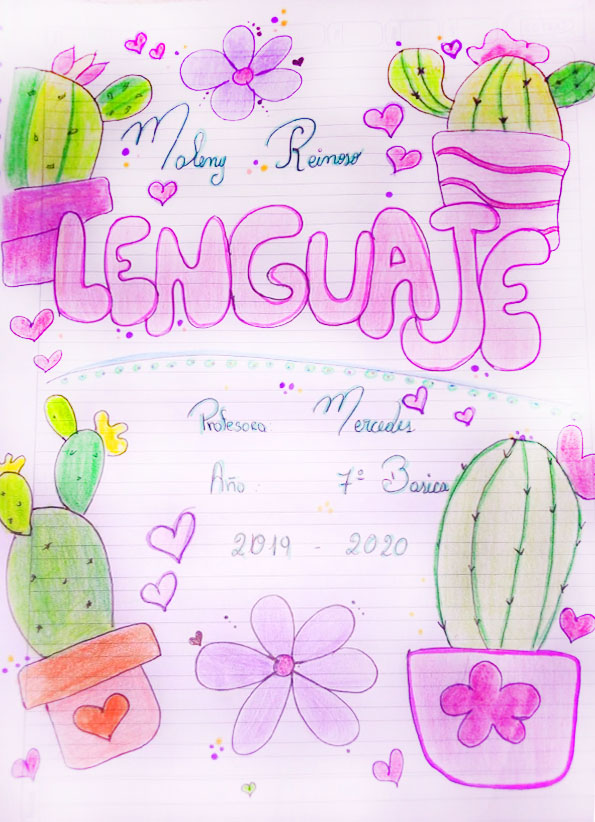 Maleny Reinoso
LENGUAJE
Profesora: Mercedes
Año: 7º Basica
2019 - 2020